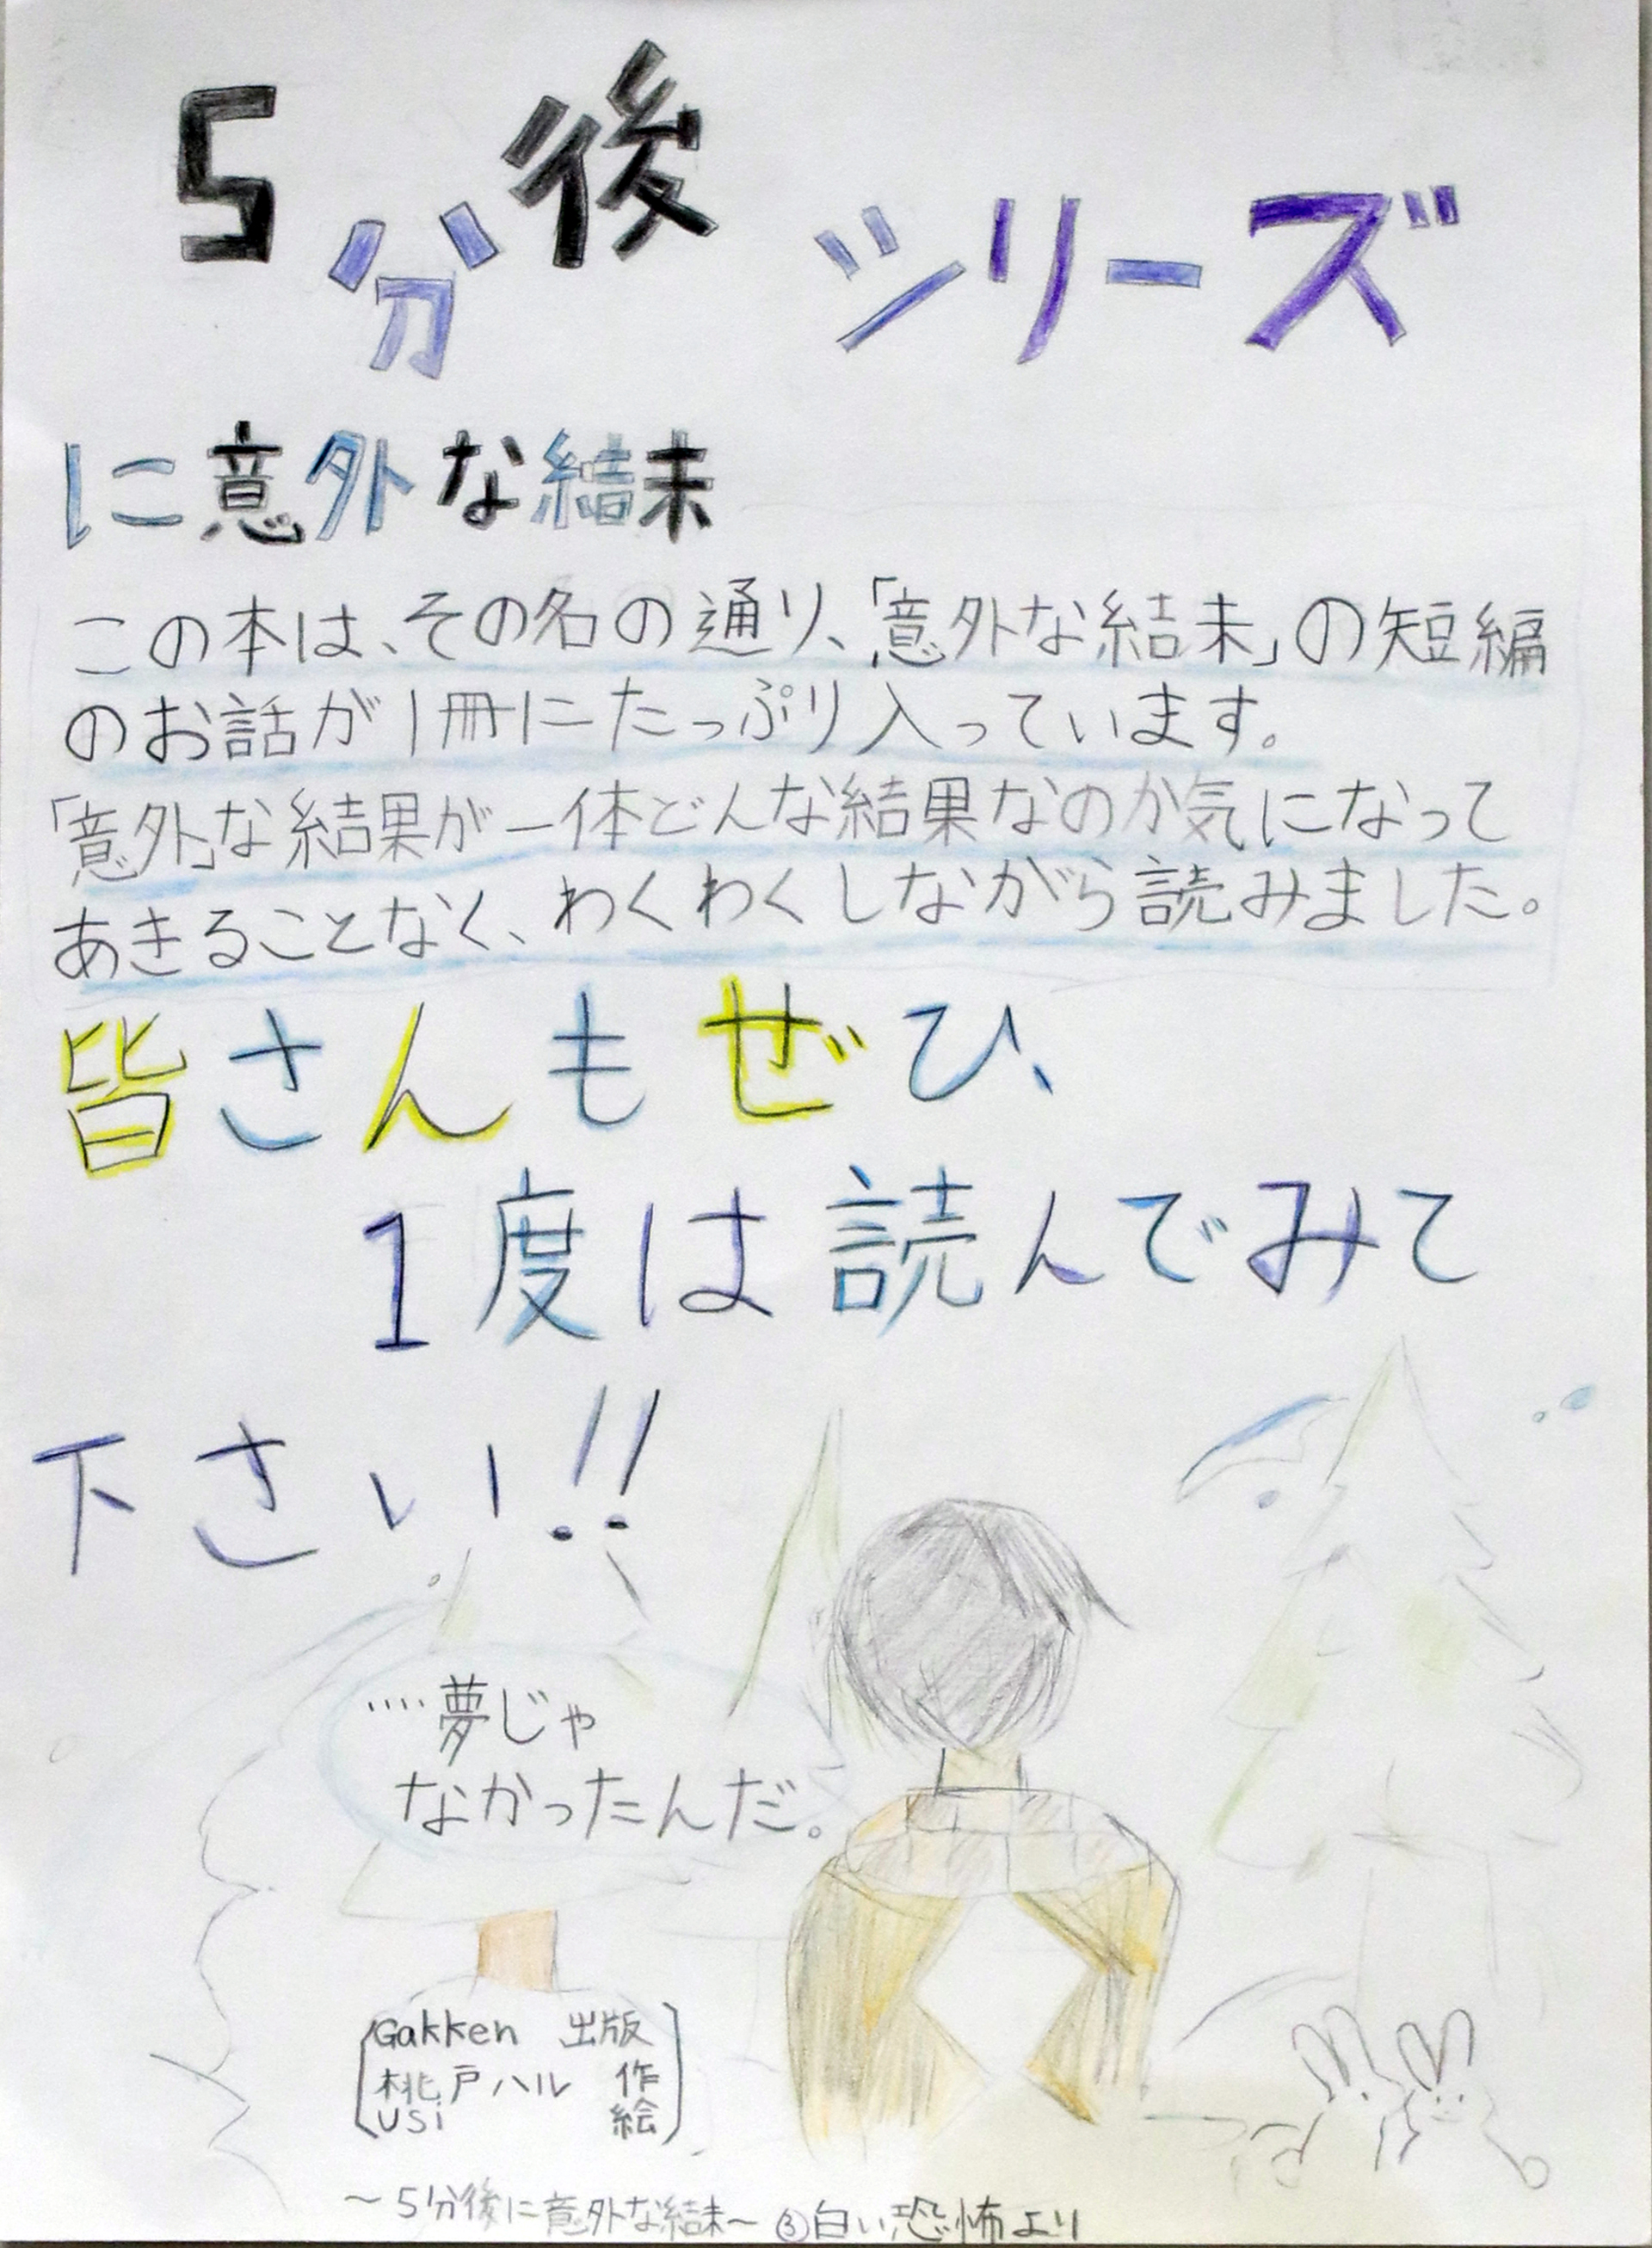 5分後シリーズ
に意外な結末
この本は、その名の通り、「意外な結末」の短編
のお話が1冊にたっぷり入っています。
「意外」な結果が一体どんな結果なのか気になって
あきることなく、わくわくしながら読みました。
皆さんもぜひ、
1度は読んでみて
下さい!!
‥‥夢じゃ
なかったんだ。
Gakken 出版
桃戸ハル 作
usi 絵
〜5分後に意外な結末〜 ③白い恐怖より